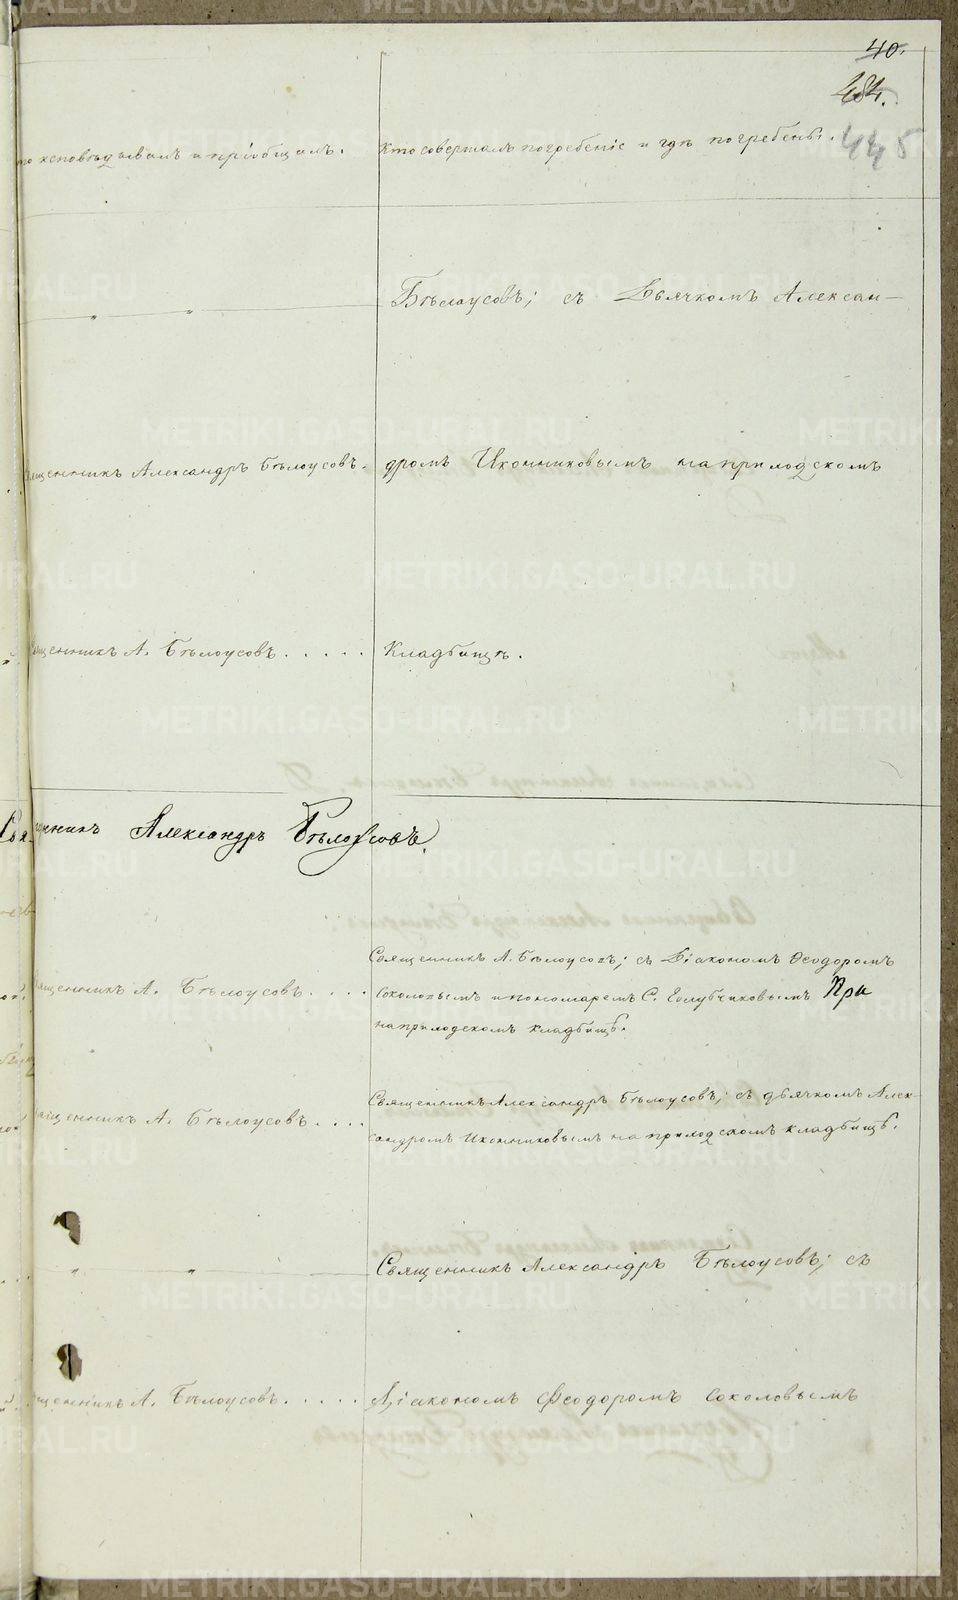 40.
484.
445
то исповѣдывалъ и пріобщалъ.
Кто совершалъ погребеніе и гдѣ погребены.
Бѣлоусовъ; съ Дьячкомъ Алексан-
щенникъ Александръ Бѣлоусовъ.
дромъ Иконниковымъ на приходскомъ
щенникъ А. Бѣлоусовъ.....
Кладбищѣ.
Священникъ Александръ Бѣлоусовъ.
Священникъ А. Бѣлоусовъ; съ Діакономъ Ѳеодоромъ
щенникъ А. Бѣлоусовъ....
Соколовымъ и пономаремъ С. Голубчиковымъ При
на приходскомъ кладбищѣ.
Священникъ Александръ Бѣлоусовъ; съ дьячкомъ Алек-
щенникъ А. Бѣлоусовъ....
сандромъ Иконниковымъ на приходскомъ кладбищѣ.
Священникъ Александръ Бѣлоусовъ; съ
щенникъ А. Бѣлоусовъ.....
Діакономъ Ѳеодоромъ Соколовымъ
METRIKI.GASO-URAL.RU